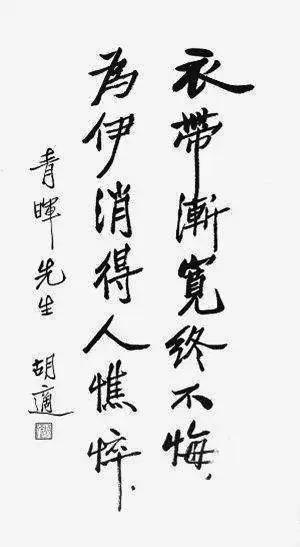 衣帶漸寬終不悔，
為伊消得人憔悴．
青暉先生 胡適